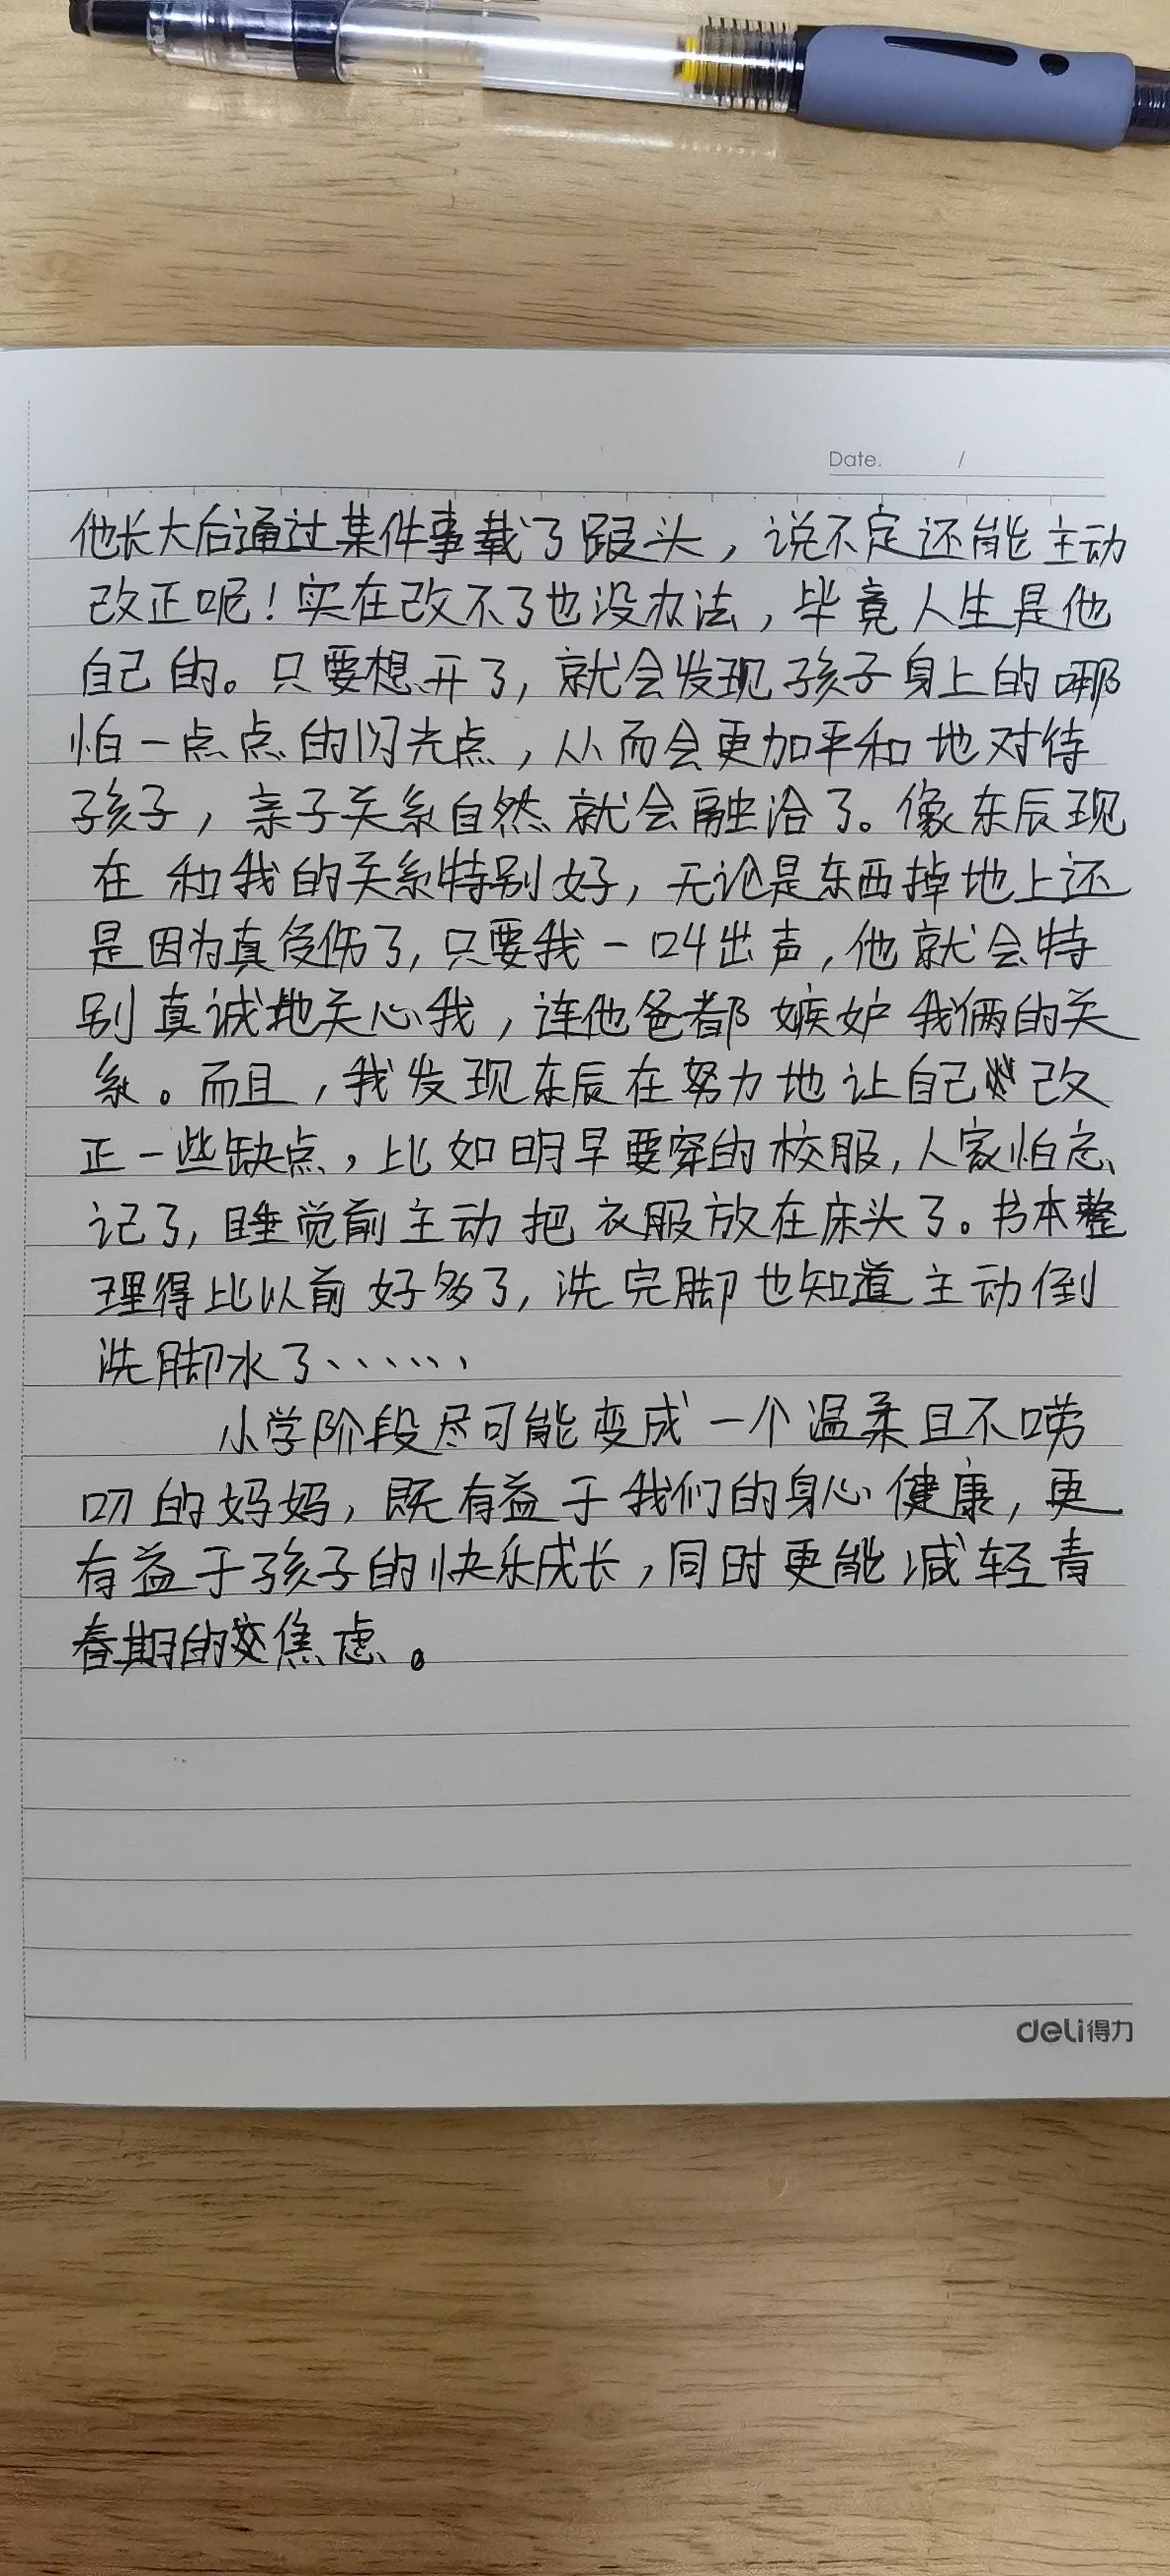 Date. /
他长大后通过某件事载了跟头，说不定还能主动
改正呢！实在改不了也没办法，毕竟人生是他
自己的。只要想开了，就会发现孩子身上的哪
怕一点点的闪光点，从而会更加平和地对待
孩子，亲子关系自然就会融洽了。像东辰现
在和我的关系特别好，无论是东西掉地上还
是因为真受伤了，只要我一叫出声，他就会特
别真诚地关心我，连他爸都嫉妒我俩的关
系。而且，我发现东辰在努力地让自己改
正一些缺点，比如明早要穿的校服，人家怕忘
记了，睡觉前主动把衣服放在床头了。书本整
理得比以前好多了，洗完脚也知道主动倒
洗脚水了……
小学阶段尽可能变成一个温柔且不唠
叨的妈妈，既有益于我们的身心健康，更
有益于孩子的快乐成长，同时更能减轻青
春期的焦虑。
deli得力